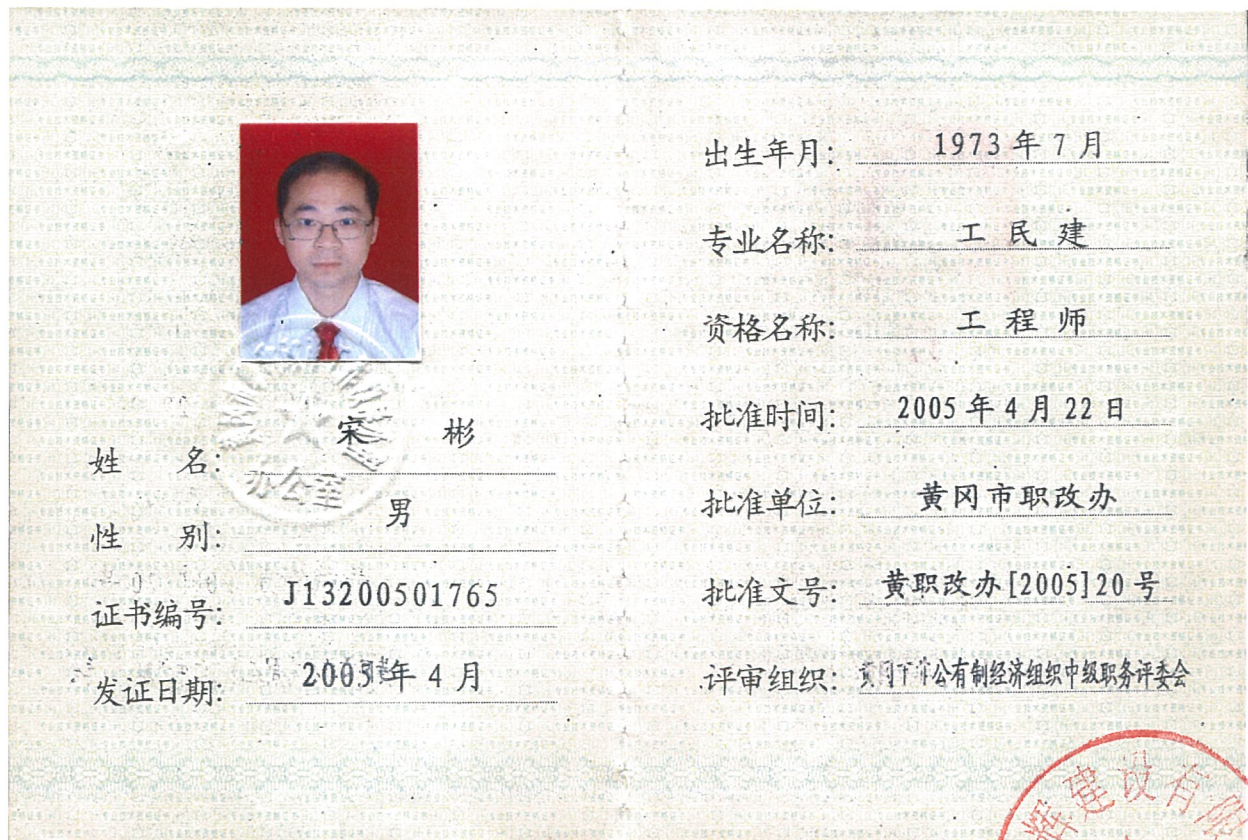 姓 名: 宋 彬
性 别: 男
证书编号: J13200501765
发证日期: 2005年 4 月
出生年月: 1973 年 7 月
专业名称: 工 民 建
资格名称: 工 程 师
批准时间: 2005 年 4 月 22 日
批准单位: 黄冈市职改办
批准文号: 黄职改办[2005]20 号
评审组织: 公有制经济组织中级职务评委会
办公室
建设有限